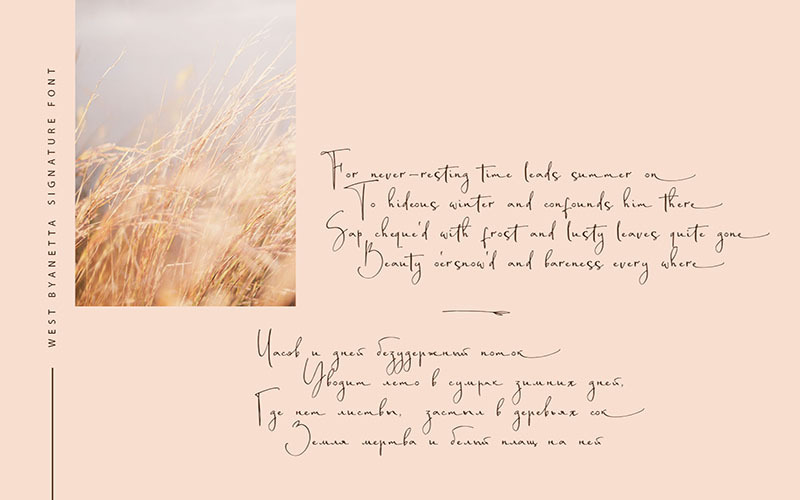 WEST BYANETTA SIGNATURE FONT
For never-resting time leads summer on
To hideous winter and confounds him there
Sap cheque'd with frost and lusty leaves quite gone
Beauty o'ersnow'd and bareness every where
Часов и дней безудержный поток
Уводит лето в сумрак зимних дней,
Где нет листвы, застыл в деревьях сок
Земля мертва и белый плащ на ней